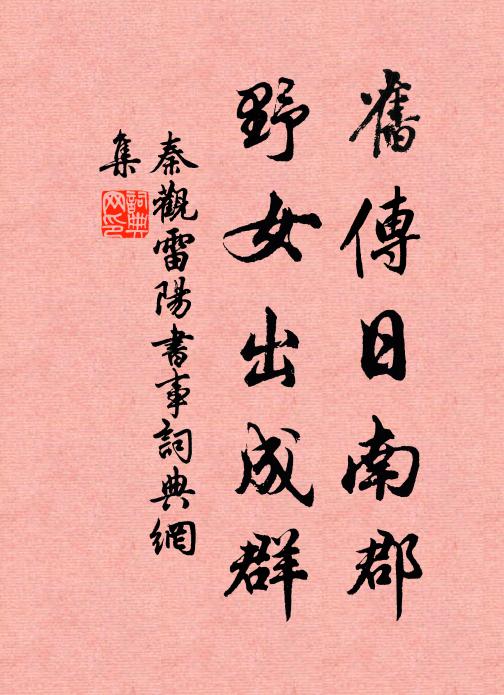 舊傳日南郡
野女出成群
秦觀雷陽書事詞典網
集
詞典
网印